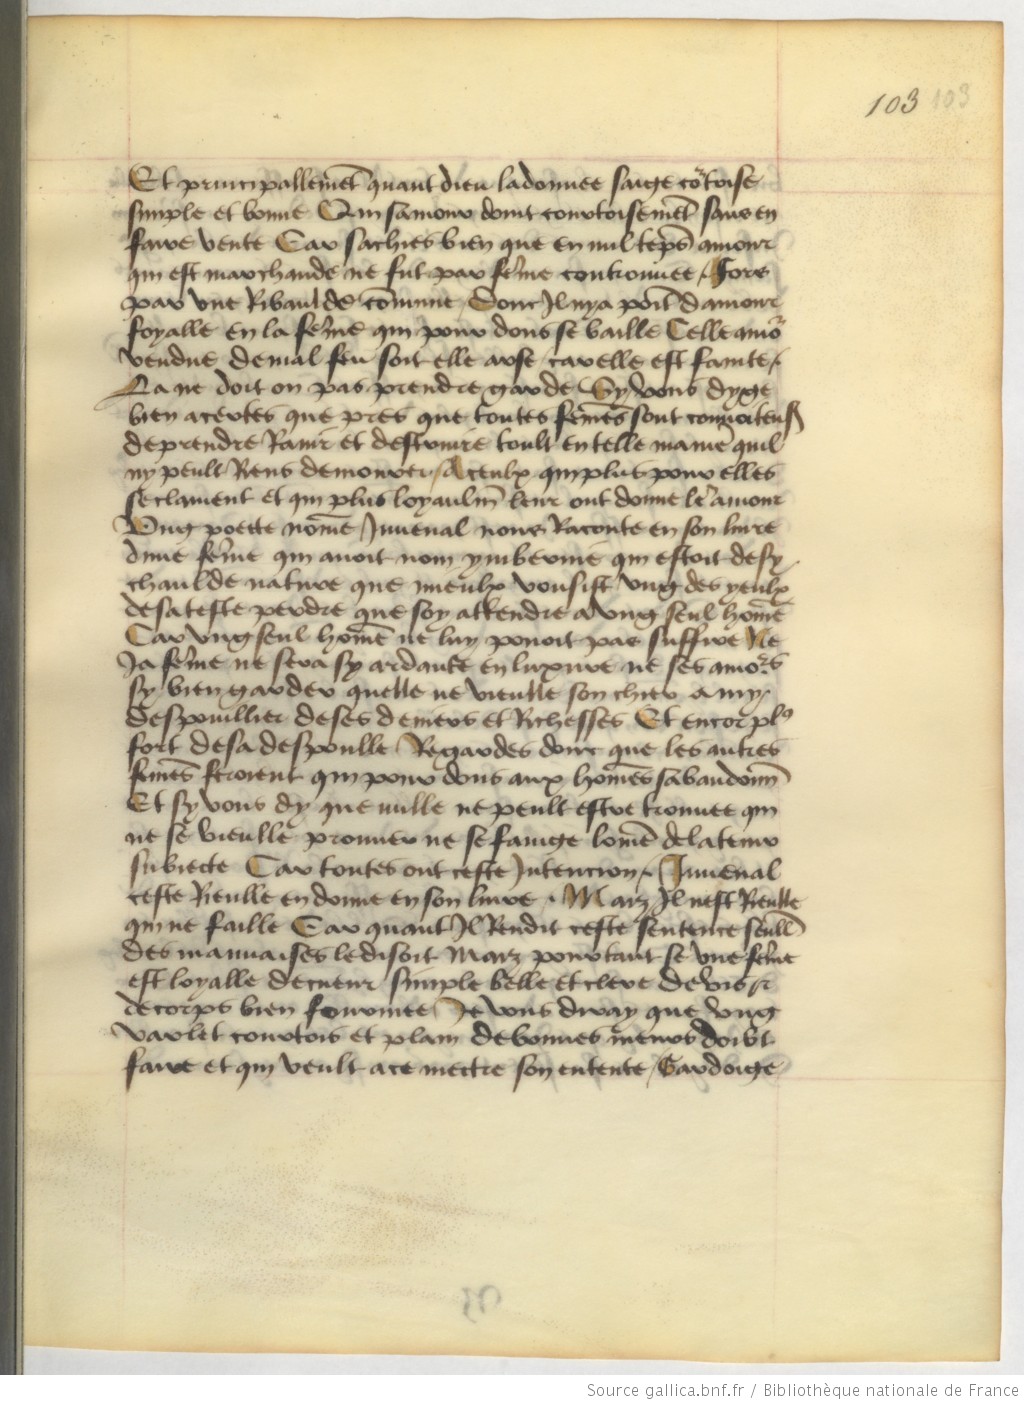 103 103
Et principallemēt quant dieu ladonnee saige co͛toise
simple et bonne Qui samour dont courtoisemēt sans en
faire vente Car sachies bien que en nul tēps amour
qui est marchande ne fut par fēme controuuee / Fors
par vne Ribaulde cōmune Donc Il nya poīt damour
loyalle en la fēme qui pour dons se baille Celle amo͛
vendue de mal feu soit elle arse car elle est fainte /.
La ne doit on pas prendre garde Sy vous dyge
bien acertes que pres que toutes fēmes sont conuoiteuses
de prendre Rauir et destruire toult en telle maniē quil
ny peult Riens demourer / A ceulx qui plus pour elles
se clament et qui plus loyaulm̄ leur ont donne le͛ amour
Vng poette nōme Juuenal nous Raconte en son liure
dune fēme qui auoit nom ymbernie qui estoit de sy
chaulde nature que mieulx vousist vng des yeulx
de sa teste perdre que soy attendre a vng seul hōme
Car vng seul hōme ne luy pouoit pas suffire Ne
Ja fēme ne sera sy ardante en luxure ne ses amo͛s
sy bien garder quelle ne vieulle son chier amy /
despouillier de ses deniers et Richesses Et encor pl9
fort de sa despoulle Regardes donc que les autres
fēmes feroient qui pour dons aux hōmes sabandonn̄
Et sy vous dy que nulle ne peult estre trouuee qui
ne se vieulle prouuer ne se fainge lōme de la tenir
subiecte Car toutes ont ceste Intencion /. Juuenal
ceste Rieulle en donne en son liure . Maiz Il nest Rieulle
qui ne faille Car quant Il Rendit ceste sentence seullm̄
des mauuaises le disoit Maiz pourtant se vne fēme
est loyalle de cueur simple belle et clere de vis et
de corps bien fournie Je vous diray que vng
varlet courtois et plain de bonnes meurs doibt
faire et qui veult a ce mectre son entente / Gardoige
Source gallica.bnf.fr / Bibliothèque nationale de France